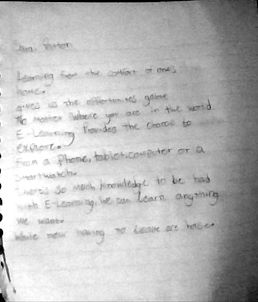 Learning from the comfort of ones
home.
gives us the opportunities galore
No matter where you are in the world
E-Learning Provides the chance to
explore.
From a Phone, tablet, computer or a
smartwatch.
theres so much knowledge to be had
with E-Learning, we can learn anything
we want.
While never having to leave are house.